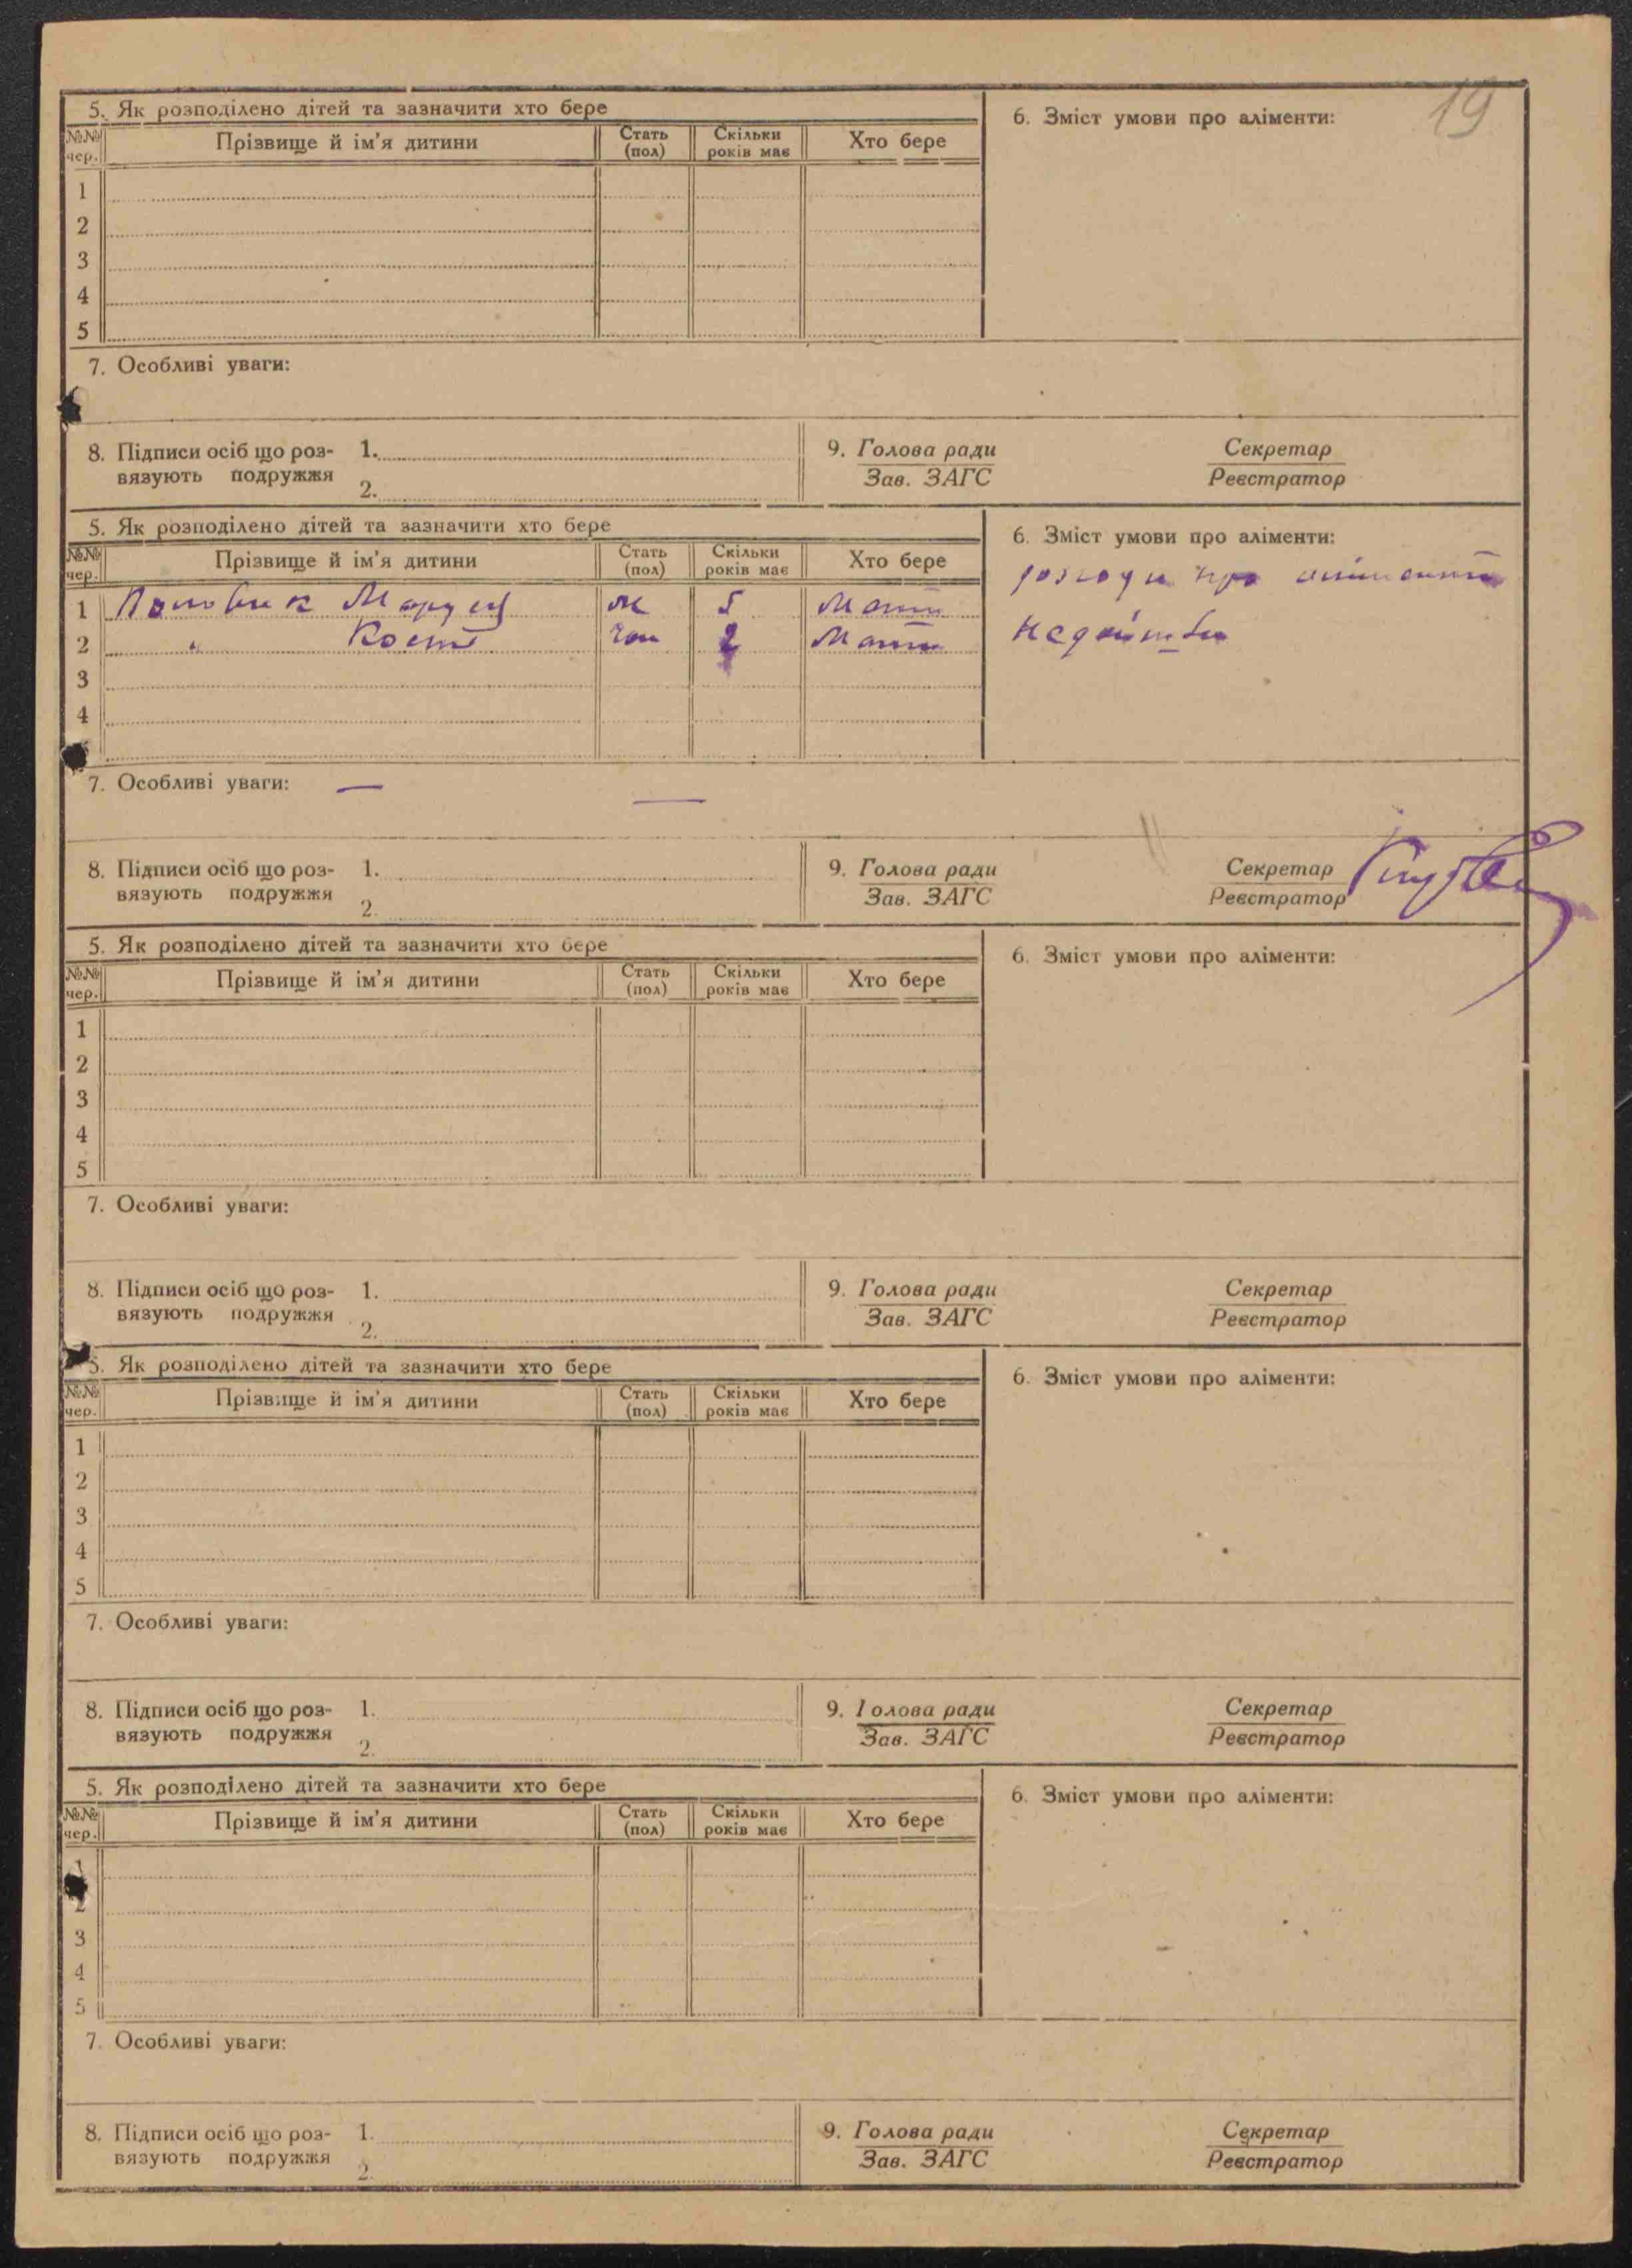 19
5. Як розподілено дітей та зазначити хто бере
6. Зміст умови про аліменти:
№№ чер. Прізвище й ім'я дитини Стать (пол) Скільки років має Хто бере
1
2
3
4
5
7. Особливі уваги:
8. Підписи осіб що роз- 1. 9. Голова ради Секретар
вязують подружжя Зав. ЗАГС Реєстратор
2.
5. Як розподілено дітей та зазначити хто бере
6. Зміст умови про аліменти:
№№ чер. Прізвище й ім'я дитини Стать (пол) Скільки років має Хто бере
про
1 5 Мати
2 " 2 Мати
3
4
7. Особливі уваги: —
8. Підписи осіб що роз- 1. 9. Голова ради Секретар
вязують подружжя Зав. ЗАГС Реєстратор
2.
5. Як розподілено дітей та зазначити хто бере
6. Зміст умови про аліменти:
№№ чер. Прізвище й ім'я дитини Стать (пол) Скільки років має Хто бере
1
2
3
4
5
7. Особливі уваги:
8. Підписи осіб що роз- 1. 9. Голова ради Секретар
вязують подружжя Зав. ЗАГС Реєстратор
2.
5. Як розподілено дітей та зазначити хто бере
6. Зміст умови про аліменти:
№№ чер. Прізвище й ім'я дитини Стать (пол) Скільки років має Хто бере
1
2
3
4
5
7. Особливі уваги:
8. Підписи осіб що роз- 1. 9. Голова ради Секретар
вязують подружжя Зав. ЗАГС Реєстратор
2.
5. Як розподілено дітей та зазначити хто бере
6. Зміст умови про аліменти:
№№ чер. Прізвище й ім'я дитини Стать (пол) Скільки років має Хто бере
1
2
3
4
5
7. Особливі уваги:
8. Підписи осіб що роз- 1. 9. Голова ради Секретар
вязують подружжя Зав. ЗАГС Реєстратор
2.